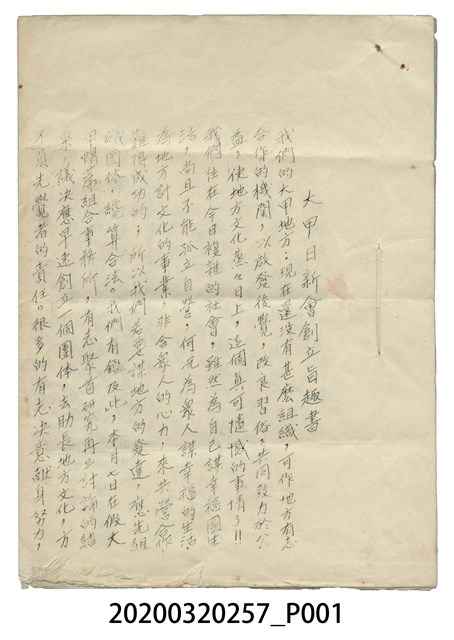 大甲日新會創立旨趣書
我們的大甲地方；現在還沒有甚麼組織，可作地方有志
合作的機關，以啟發後覺，改良習俗，共同致力於公
益，使地方文化蒸々日上，這個真可遺憾的事情了!!
我們住在今日複雜的社會，雖然為自己謀幸福圖生
活，尚且不能孤立自營，何況為衆人謀幸福的生活，
為地方討文化的事業，非合衆人的心力，來共營合作
難得成功的；所以我們若要謀地方的發達，應先組
織團体，纔算合法。我們有鑑及此，本月七日在假大
甲帽蓆組合事務所，有志聚首研究再三討論的結
果，議決應早速創立一個團体，去助長地方文化，方
不負先覺者的責任。很多的有志決意獻身努力，
20200320257_P001